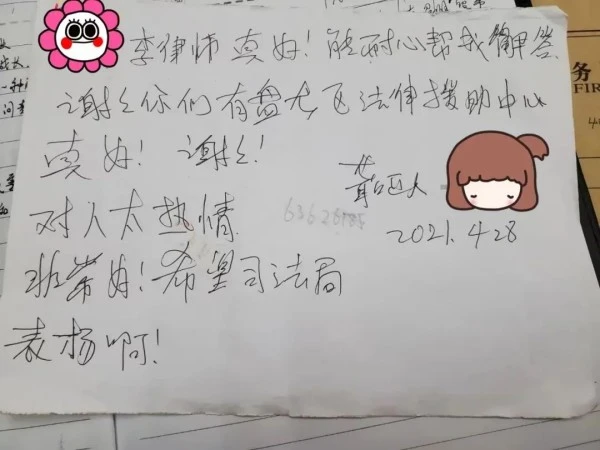 李律师真好！能耐心帮我解答
谢谢你们有盘龙区法律援助中心
真好！谢谢！
对人太热情
2021.4.28
非常好！希望司法局
表扬啊！
务
FIR